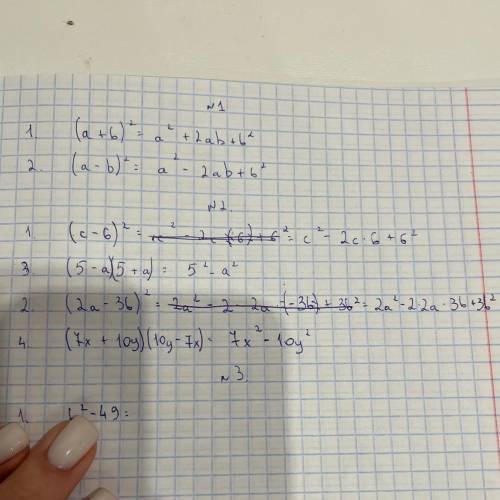 №1
1. (a+b)² = a² + 2ab + b²
2. (a-b)² = a² - 2ab + b²
№2
1. (c-6)² = c² - 2c·6 + 6²
3. (5-a)(5+a) = 5² - a²
2. (2a-3b)² = 2a² - 2·2a·3b + 3b²
4. (7x+10y)(10y-7x) = 7x² - 10y²
№3
1. ² - 49 =